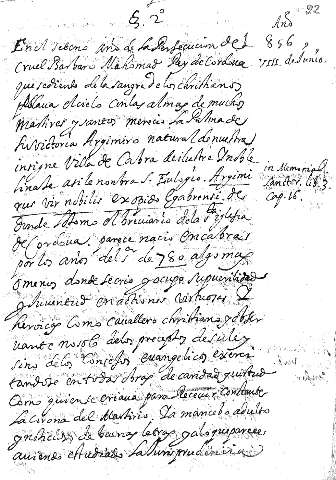 22
§. 2º
Año
856
VIII. de Junio.
En el sebeno año de la Persecucion del
Cruel Barbaro Mahomad Rey de Cordoua
que sediento de la sangre de los christianos
Poblaua el cielo con las almas de muchos
Martires y santos merecio la Palma de
su Victoria Argimiro natural de nuestra
insigne Villa de Cabra de ilustre i noble
linaje asi le nombra S. Eulogio. Argimi
rus vir nobilis ex opido Egabrensi. de
donde lo tomo el breuiario de la sta Iglesia
de Cordoua. parece nacio en Cabra
por los años del sr de 780 algo mas
o menos donde se crio y ocupo su puerilidad
y Juuentud en actiones virtuosas y
heroycas Como cauallero christiano y obser
uante no solo de los preceptos de su ley
sino de los Consejos euangelicos exerci
tandose en todas obras de caridad y uirtud
Como quien se criaua para Receuir Constante
la Corona del Martirio. Ya mancebo adulto
y noticioso de buenas letras y a lo que parece
auiendo estudiado la Jurisprudencia
in Memorial
Sanctor. lib. 3
Cap. 16.